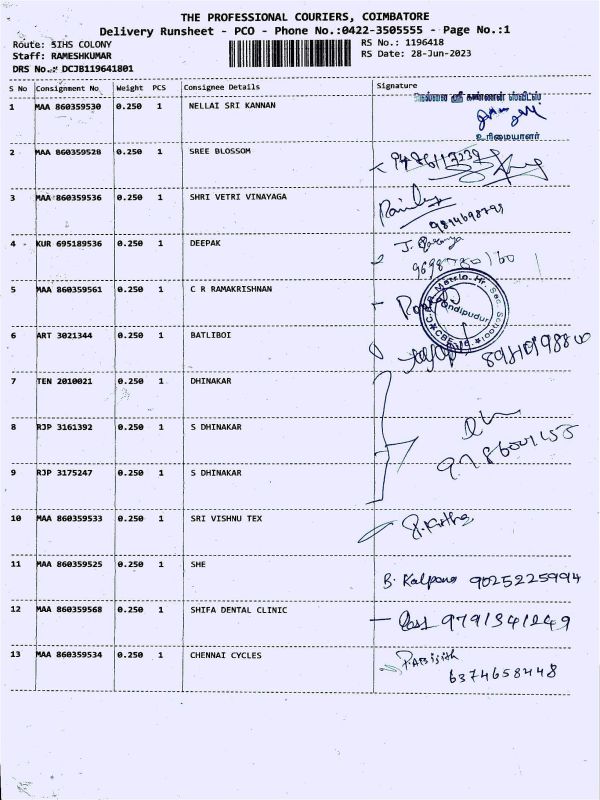 THE PROFESSIONAL COURIERS, COIMBATORE
Delivery Runsheet - PCO - Phone No.:0422-3505555 - Page No.:1
Route: SIHS COLONY
RS No.: 1196418
Staff: RAMESHKUMAR
RS Date: 28-Jun-2023
DRS No.: DCJB119641801
S No Consignment No Weight PCS Consignee Details Signature
1 MAA 860359530 0.250 1 NELLAI SRI KANNAN
நெல்லை ஸ்ரீ கண்ணன் ஸ்வீட்ஸ்
உரிமையாளர்
2 MAA 860359528 0.250 1 SREE BLOSSOM
3 MAA 860359536 0.250 1 SHRI VETRI VINAYAGA
4 KUR 695189536 0.250 1 DEEPAK
5 MAA 860359561 0.250 1 C R RAMAKRISHNAN
6 ART 3021344 0.250 1 BATLIBOI
7 TEN 2010021 0.250 1 DHINAKAR
8 RJP 3161392 0.250 1 S DHINAKAR
9 RJP 3175247 0.250 1 S DHINAKAR
10 MAA 860359533 0.250 1 SRI VISHNU TEX
11 MAA 860359525 0.250 1 SHE B. Kalpana 9025225994
12 MAA 860359568 0.250 1 SHIFA DENTAL CLINIC 9791341249
13 MAA 860359534 0.250 1 CHENNAI CYCLES
6374658448